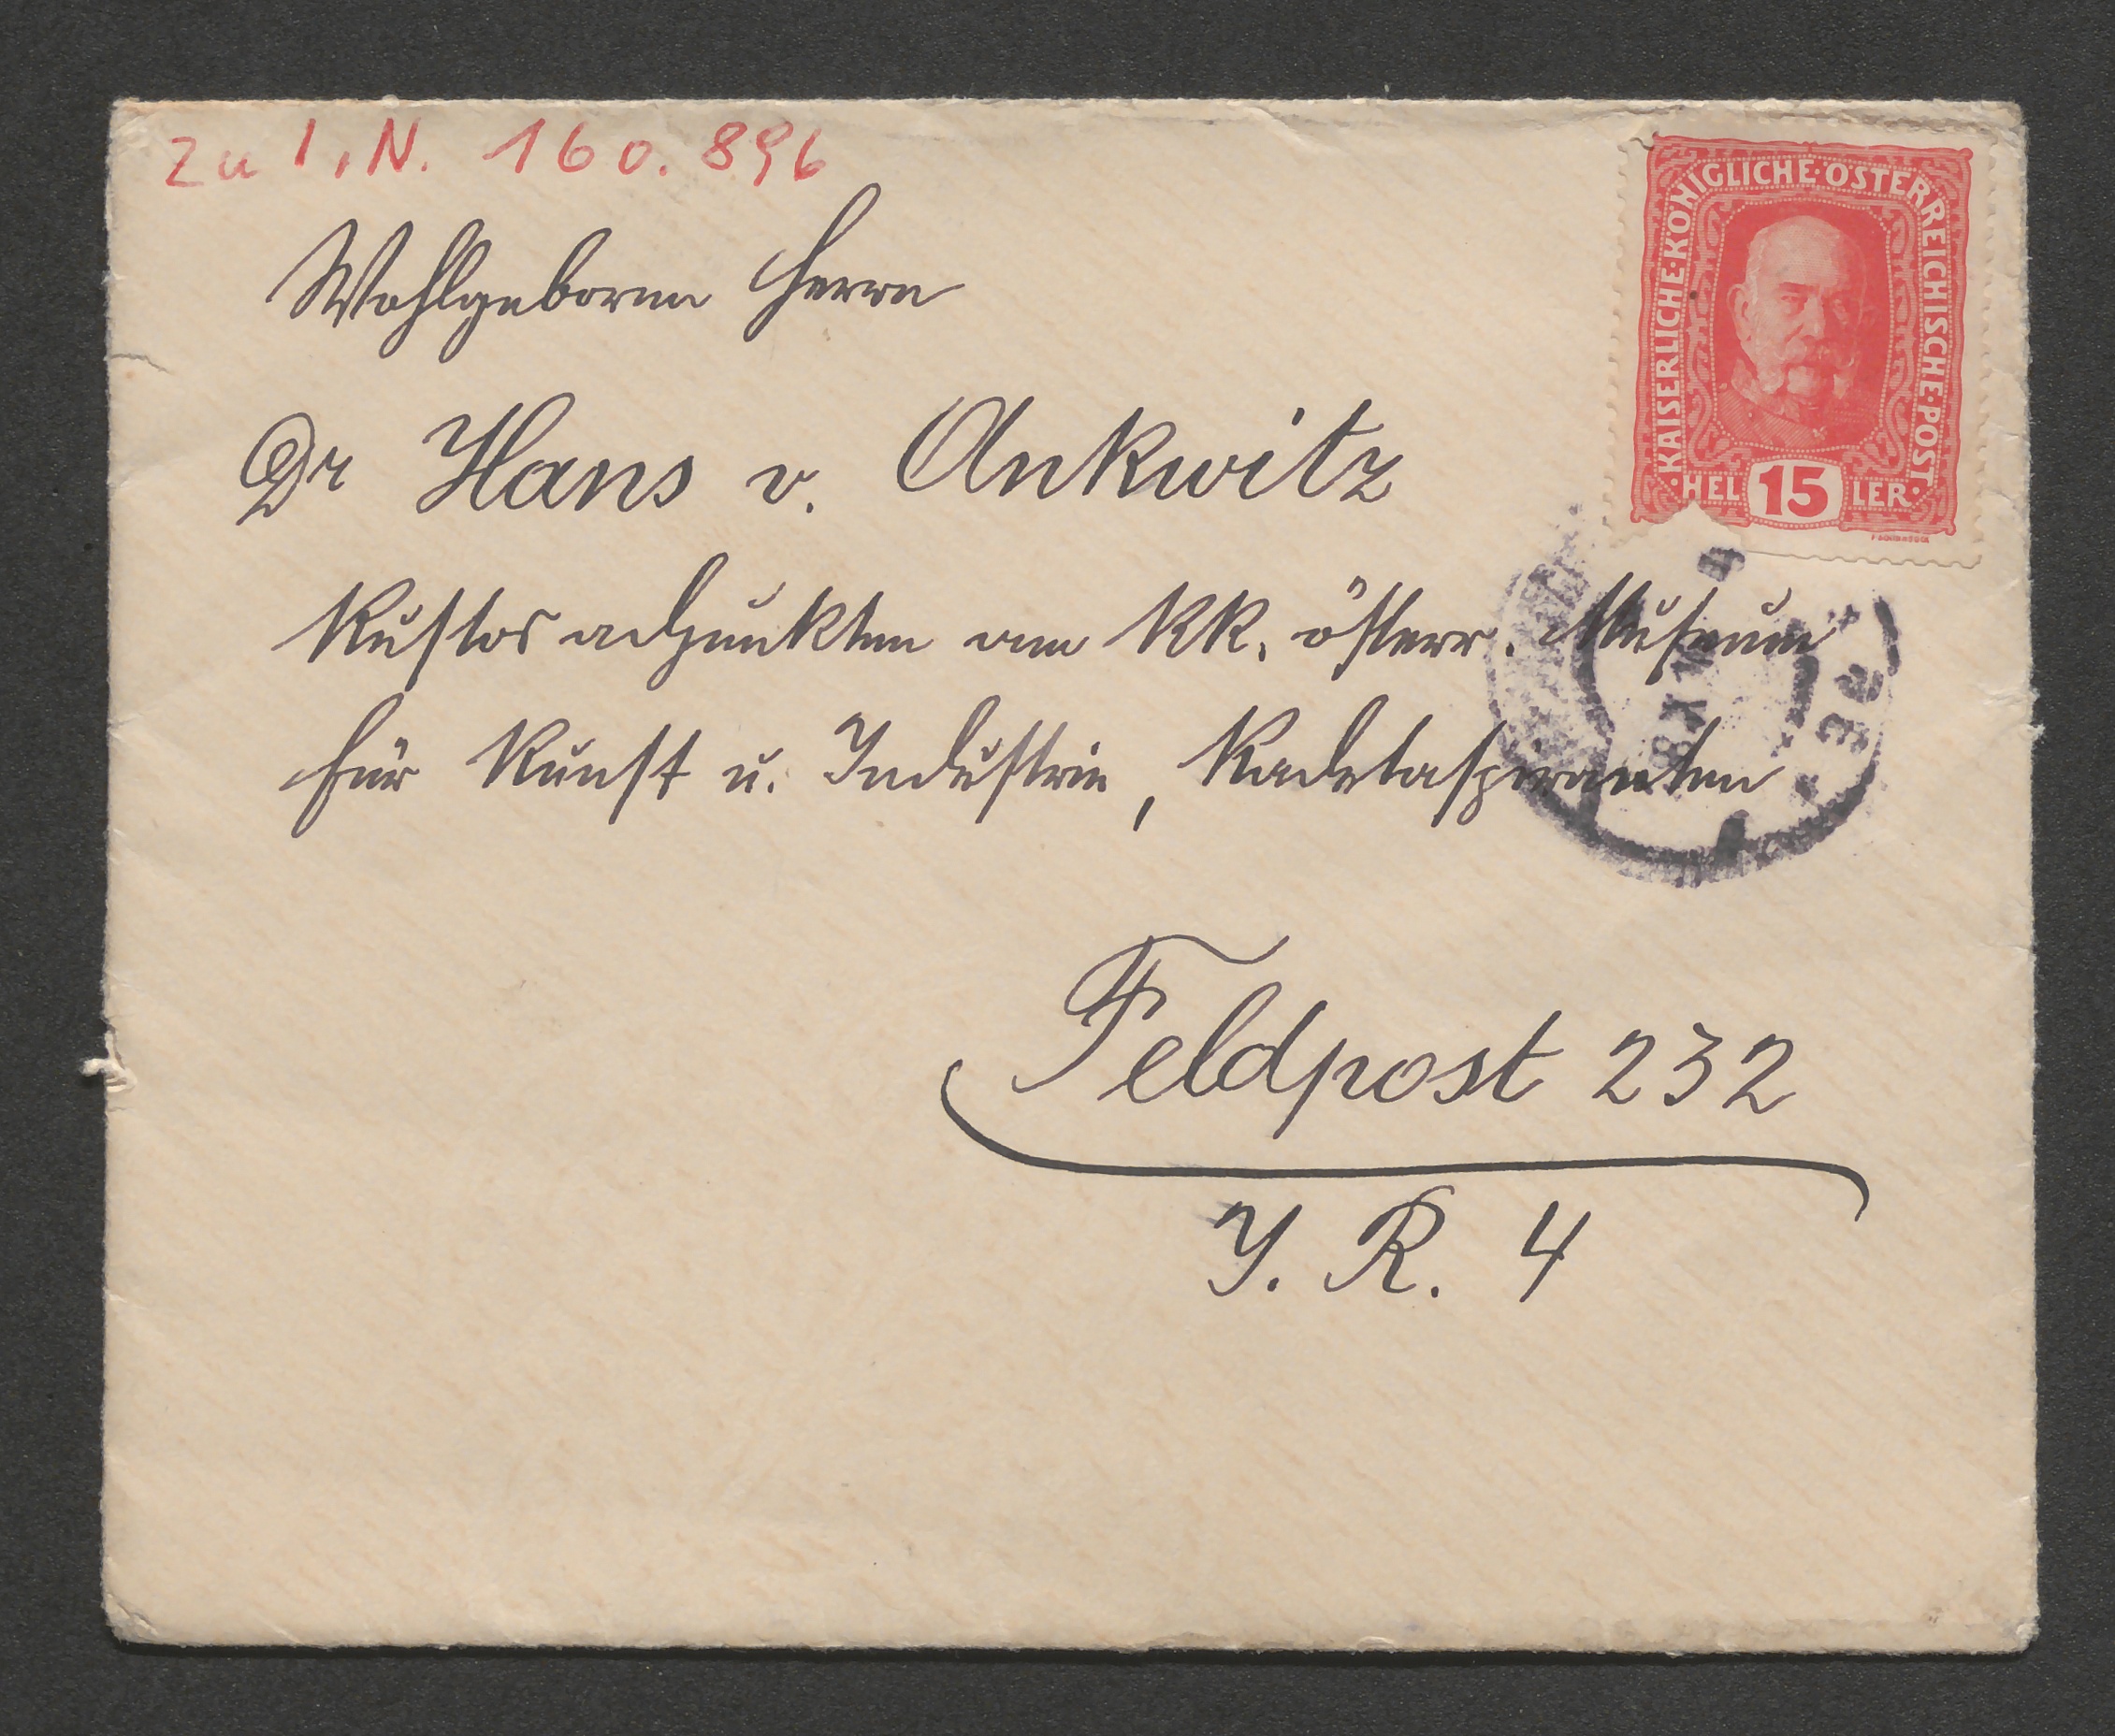 zu I. N. 160.896
KAISERLICHE·KÖNIGLICHE·ÖSTERREICHISCHE·POST·
·HEL 15 LER·
Wohlgeboren Herrn
Dr Hans v. Ankwitz
Kustosadjunkten am KK. österr. Museum
für Kunst u. Industrie, Kadetaspiranten
Feldpost 232
I. R. 4